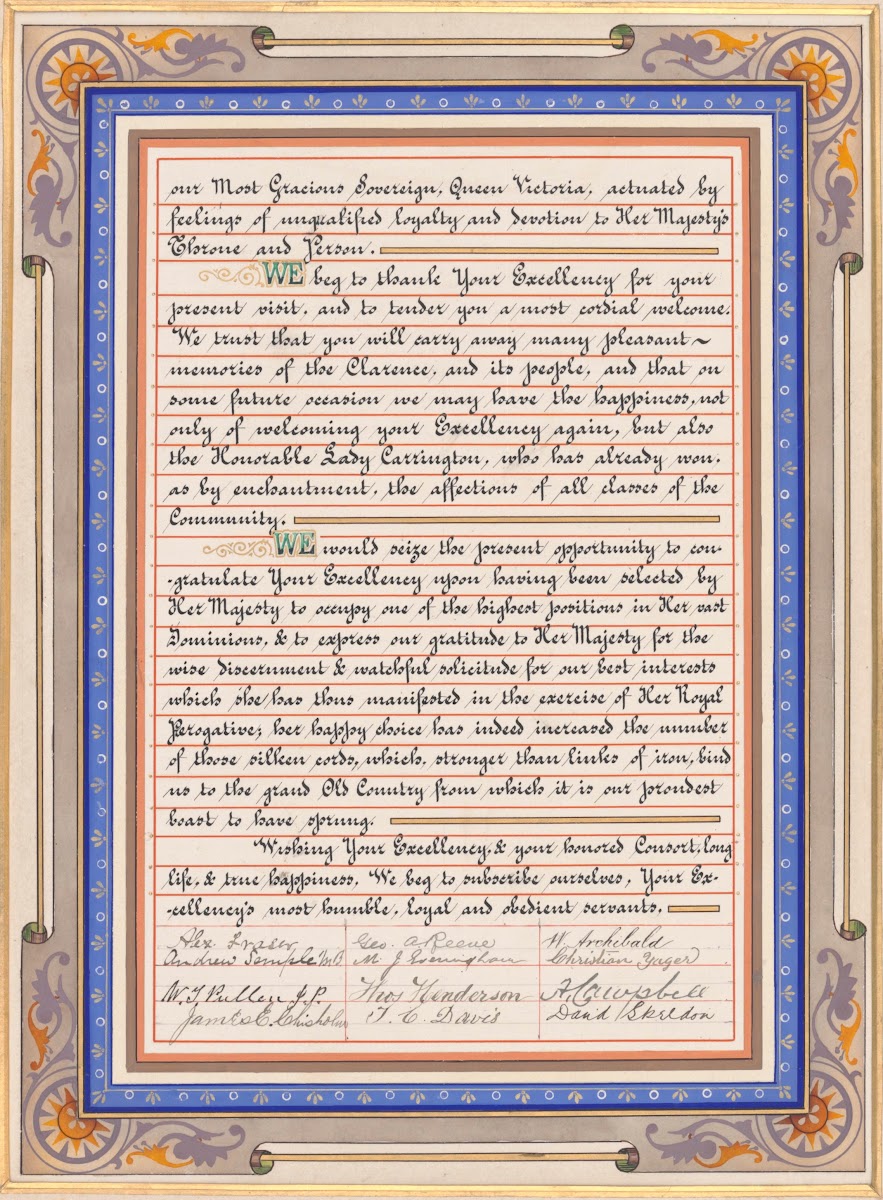 our Most Gracious Sovereign, Queen Victoria, actuated by
feelings of unqualified loyalty and devotion to Her Majesty's
Throne and Person.
WE beg to thank Your Excellency for your
present visit, and to tender you a most cordial welcome.
We trust that you will carry away many pleasant ~
memories of the Clarence, and its people, and that on
some future occasion we may have the happiness, not
only of welcoming your Excellency again, but also
the Honorable Lady Carrington, who has already won,
as by enchantment, the affections of all classes of the
Community.
WE would seize the present opportunity to con-
-gratulate Your Excellency upon having been selected by
Her Majesty to occupy one of the highest positions in Her vast
Dominions, & to express our gratitude to Her Majesty for the
wise discernment & watchful solicitude for our best interests
which she has thus manifested in the exercise of Her Royal
Perogative; her happy choice has indeed increased the number
of those silken cords, which, stronger than links of iron, bind
us to the grand Old Country from which it is our proudest
boast to have sprung.
Wishing Your Excellency, & your honored Consort, long
life, & true happiness, We beg to subscribe ourselves, Your Ex-
-cellency's most humble, loyal and obedient servants.
Alex Fraser Geo. A Reeve W. Archibald
Andrew Semple M.B M. J Everingham Christian Yager
W. T Pullen J.P. Thos Henderson A Campbell
James E. Chisholm T. C. Davis David Skeldon